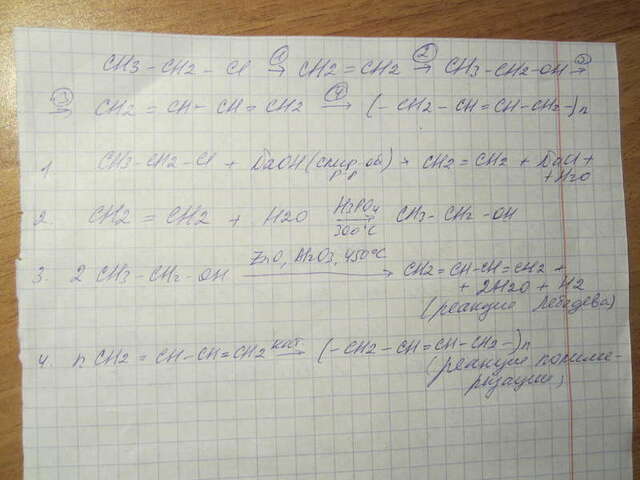 CH3 - CH2 - Cl ①→ CH2 = CH2 ②→ CH3 - CH2 - OH ③→
③→ CH2 = CH - CH = CH2 ④→ (- CH2 - CH = CH - CH2 -)n
1. CH3 - CH2 - Cl + NaOH (спирт-ой р-р) → CH2 = CH2 + NaCl +
+ H2O
2. CH2 = CH2 + H2O H3PO4 → 300°C CH3 - CH2 - OH
3. 2 CH3 - CH2 - OH ZnO, Al2O3, 450°C → CH2 = CH - CH = CH2 +
+ 2H2O + H2
(реакция Лебедева)
4. n CH2 = CH - CH = CH2 кат → (- CH2 - CH = CH - CH2 -)n
(реакция полиме-
ризации)